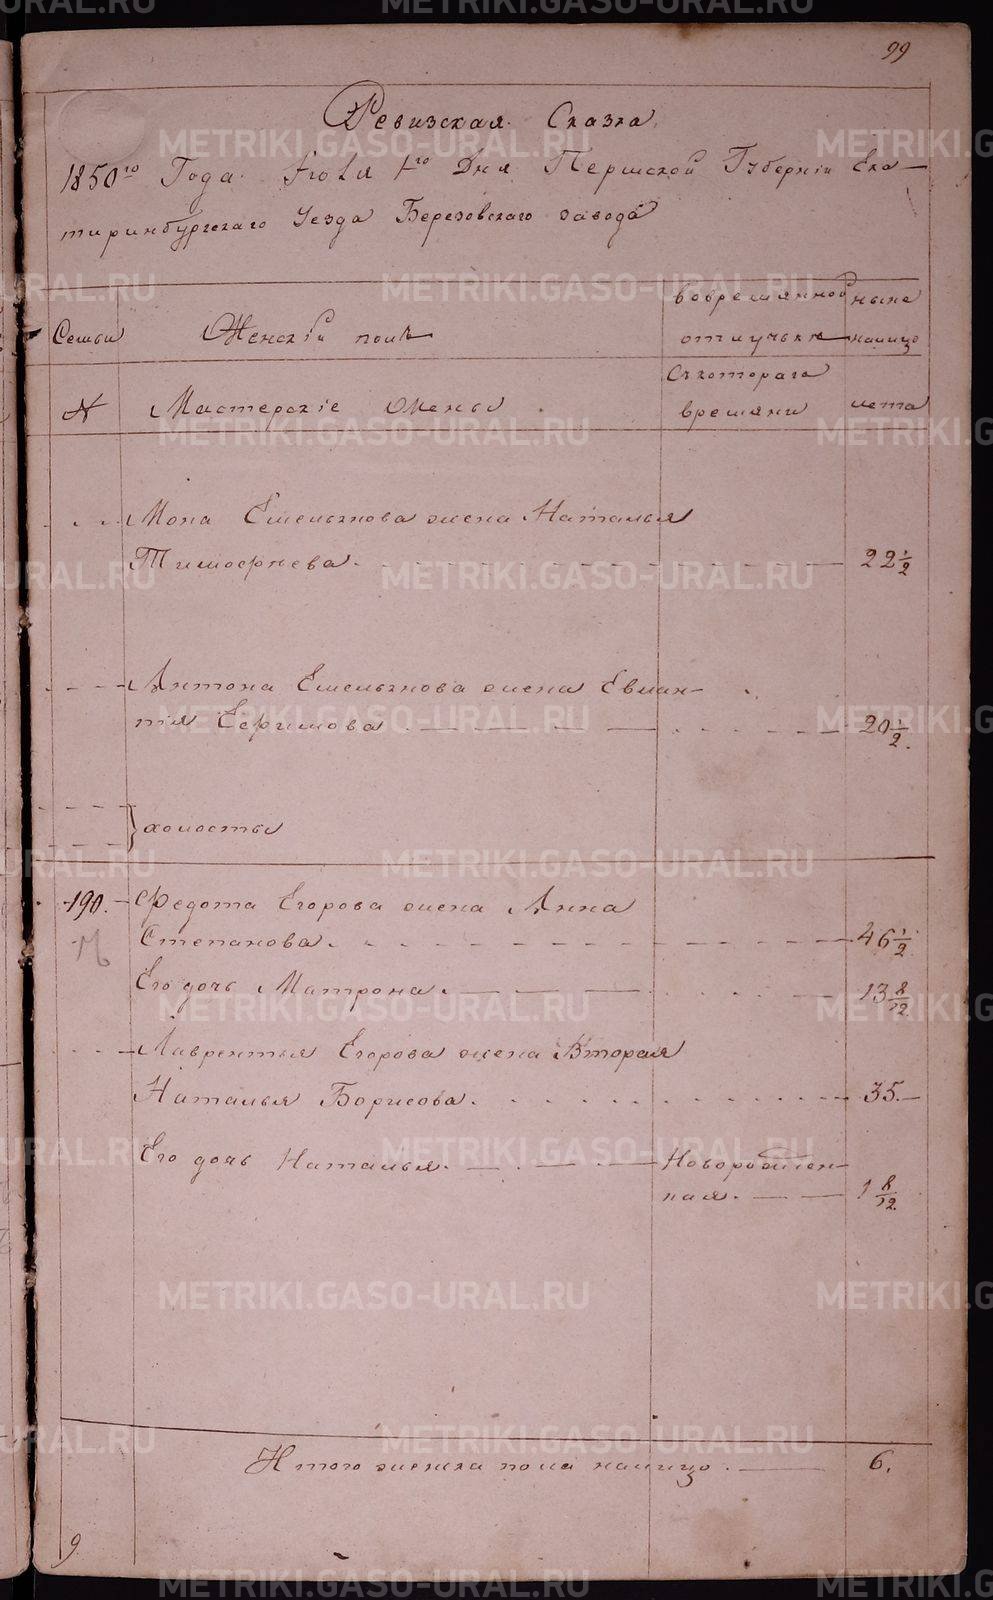 99
Ревизская Сказка
1850го Года Июля 1го Дня Пермской Губернiи Ека-
тиринбургскаго Уезда Березовскаго завода
Семьи
Женскiй полъ
вовремянной
отлучьке
ныне
налицо
№
Мастерскiе Жены
Скотораго
времяни
лета
Мона Емельянова жена Наталья
Тимофеева. 22 1/2
Антона Емельянова жена Евлан-
пiя Ефимова 20 1/2
холосты
190. Федота Егорова жена Анна
Степанова. 46 1/2
Его дочь Матрона. 13 8/12
Лаврентья Егорова жена Вторая
Наталья Борисова. 35.
Его дочь Наталья. Новорожден-
ная. 1 8/12
Итого женска пола налицо. 6.
9
METRIKI.GASO-URAL.RU